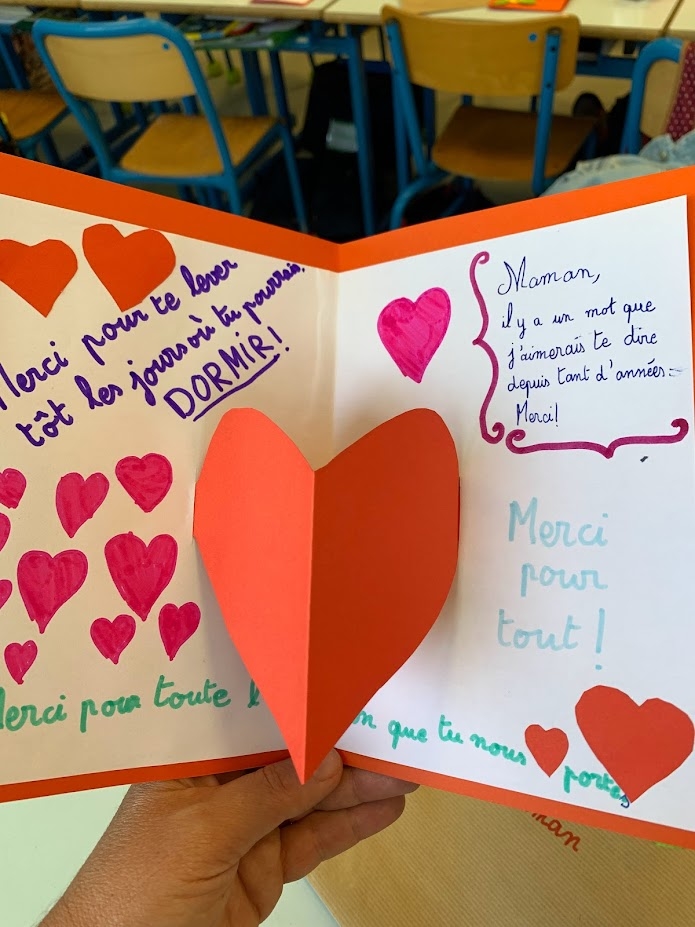 Merci pour te lever
tôt les jours où tu pourrais
DORMIR!
Maman,
il y a un mot que
j'aimerais te dire
depuis tant d'années:
Merci!
Merci
pour
tout!
Merci pour toute que tu nous portes
man